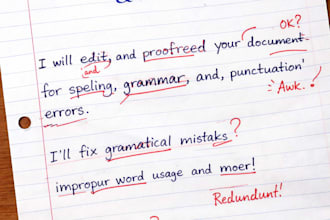 OK?
I will edit, and proofreed your document.
and
for speling, grammar, and, punctuation'
Awk. !
errors.
I'll fix gramatical mistaks?
impropur word usage and moer!
Redundunt!